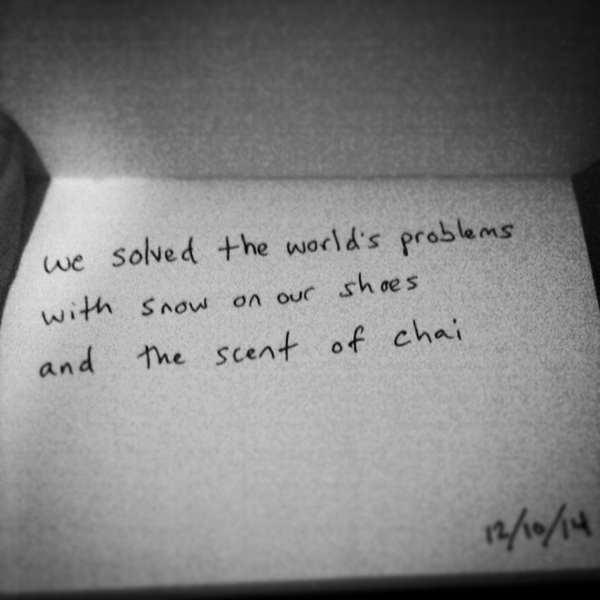 we solved the world's problems
with snow on our shoes
and the scent of chai
12/10/14